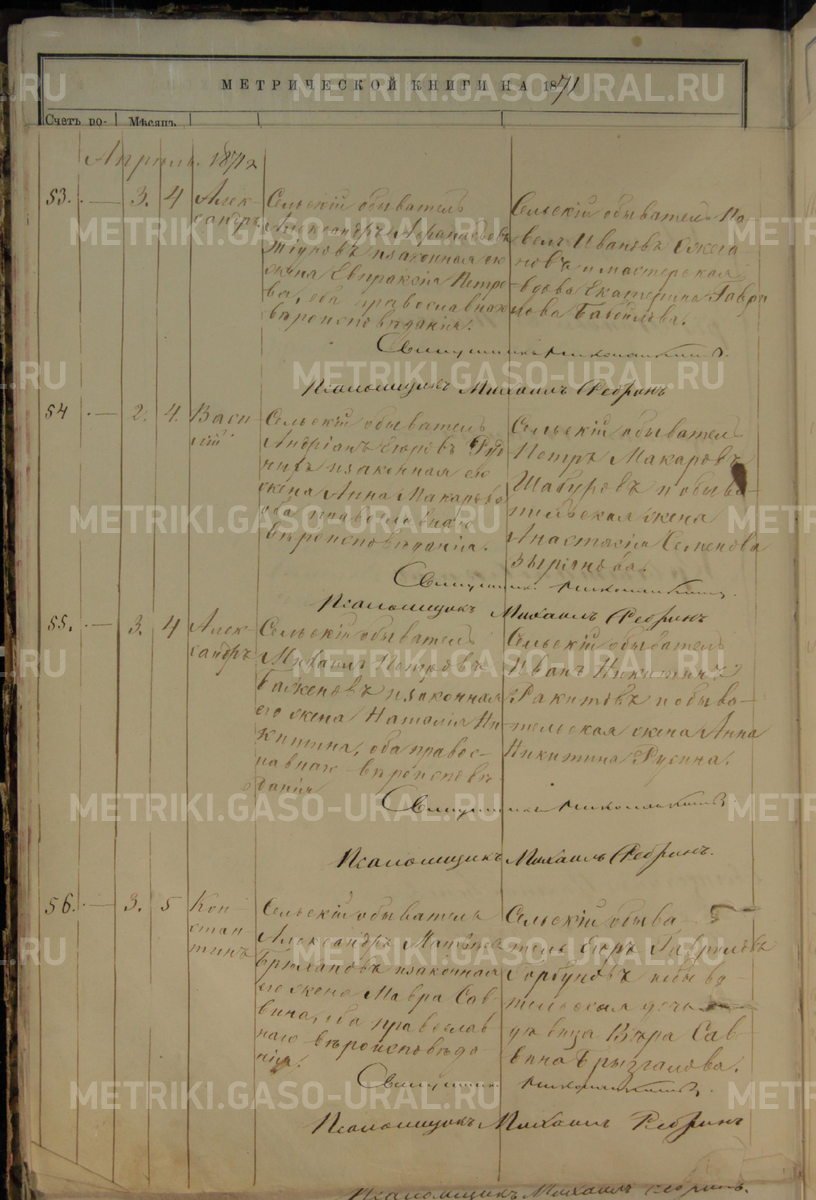 МЕТРИЧЕСКОЙ КНИГИ НА 1871
Счетъ ро- Мѣсяцъ
Апрѣль 1872
53. — 3. 4 Алек-
сандръ
Сельскій обыватель
Александръ
и законная его
жена Евпраксія Петро-
ва, оба православнаго
вѣроисповѣданія.
Сельскій обыватель Па-
велъ Ивановъ
и мастерская
вдова Екатерина Гаври-
лова
Священникъ
Псаломщикъ Михаилъ Ребринъ
54 — 2. 4. Васи-
лій
Сельскій обыватель
Андріанъ
и законная его
жена Анна Макарова
оба православнаго
вѣроисповѣданія.
Сельскій обыватель
Петръ Макаровъ
и обыва-
тельская жена
Анастасія Семенова
Зырянова.
Священникъ
Псаломщикъ Михаилъ Ребринъ
55. — 3. 4 Алек-
сандръ
Сельскій обыватель
Михаилъ Петровъ
Баженовъ и законная
его жена Наталія Ни-
китина, оба правос-
лавнаго вѣроисповѣ-
данія
Сельскій обыватель
Иванъ Никитинъ
Ракитовъ и обыва-
тельская жена Анна
Никитина Русина.
Священникъ
Псаломщикъ Михаилъ Ребринъ.
56. — 3. 5 Кон-
стан-
тинъ
Сельскій обыватель
Александръ
и законная
его жена Мавра Сав-
вина, оба православ-
наго вѣроисповѣда-
нія.
Сельскій обыва-
тель Гавриловъ
Горбуновъ и обыва-
тельская дочь
дѣвица Вѣра Сав-
вина Брызгалова.
Священникъ
Псаломщикъ Михаилъ Ребринъ
Псаломщикъ Михаилъ Ребринъ.
METRIKI.GASO-URAL.RU